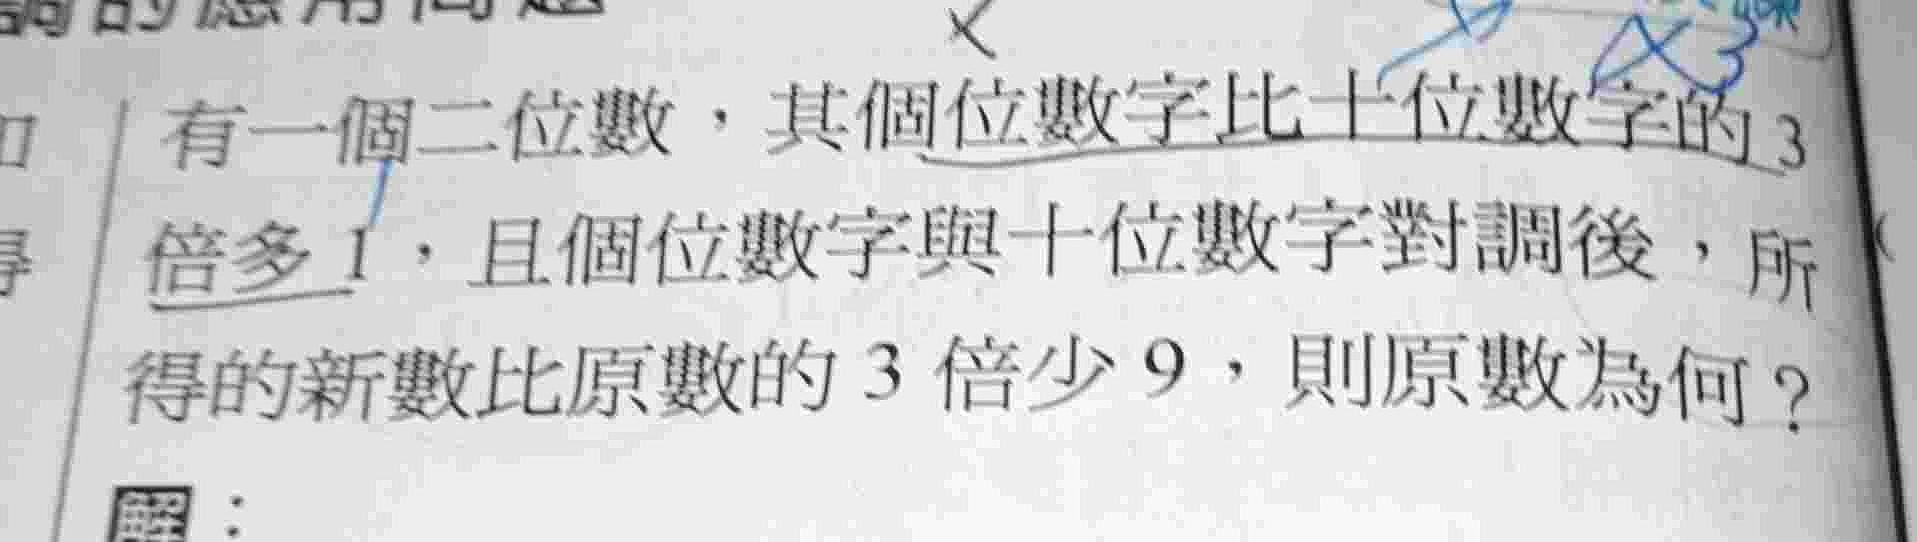 調的應用問題
有一個二位數，其個位數字比十位數字的3
倍多1，且個位數字與十位數字對調後，所
得的新數比原數的3倍少9，則原數為何？
解：